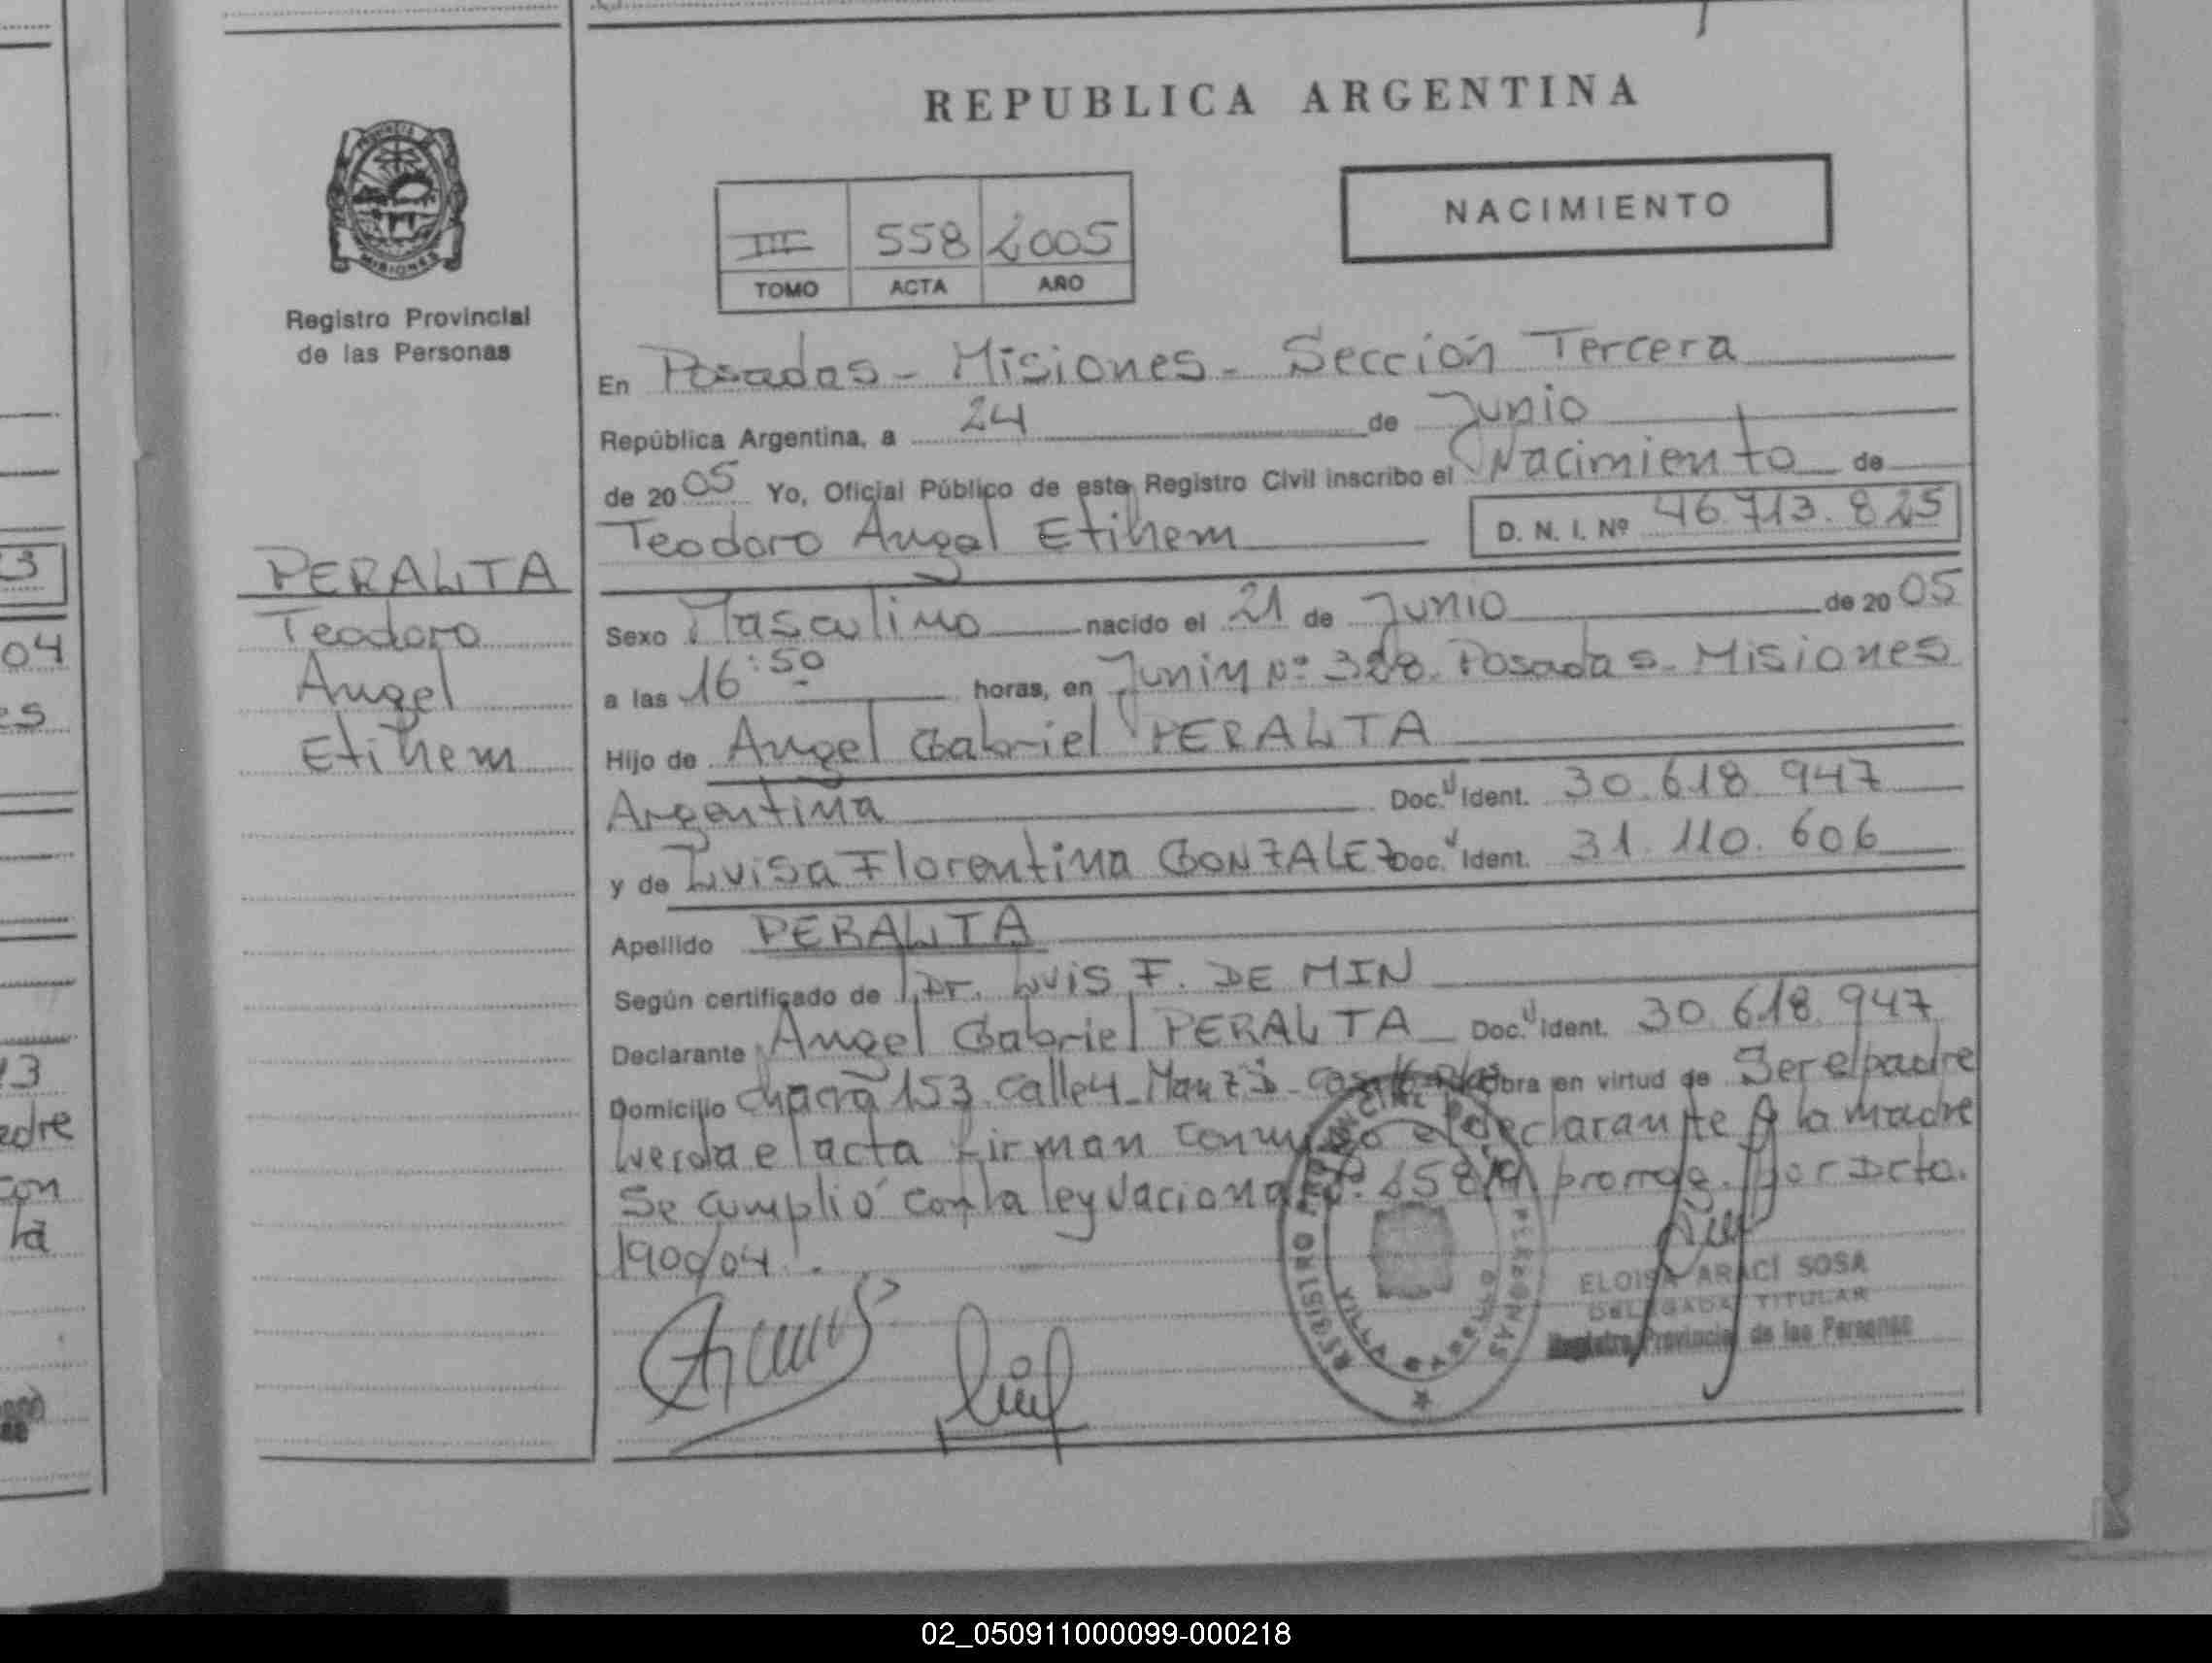 REPUBLICA ARGENTINA
NACIMIENTO
III 558 2005
TOMO ACTA AÑO
PROVINCIA
MISIONES
Registro Provincial
de las Personas
En Posadas - Misiones - Sección Tercera
República Argentina, a 24 de Junio
de 2005 Yo, Oficial Público de este Registro Civil inscribo el Nacimiento de
Teodoro Angel Etihem D. N. I. Nº 46.713.825
PERALTA
Teodoro
Angel
Etihem
Sexo Masculino nacido el 21 de Junio de 2005
a las 16:50 horas, en Junin Nº 328. Posadas - Misiones
Hijo de Angel Gabriel PERALTA
Argentina Doc. Ident. 30.618.947
y de Luisa Florentina GONZALEZ Doc. Ident. 31.110.606
Apellido PERALTA
Según certificado de Dr. Luis F. DE MIN
Declarante Angel Gabriel PERALTA Doc. Ident. 30.618.947
Domicilio Chacra 153 calle 4 - Manz obra en virtud de Ser el padre
Leida el acta firman conmigo el declarante y la madre
Se cumplió con la ley Nacional prorrog. por Dcto.
190/04.
ELOISA ARACÍ SOSA
DELEGADA TITULAR
Registro Provincial de las Personas
02_050911000099-000218